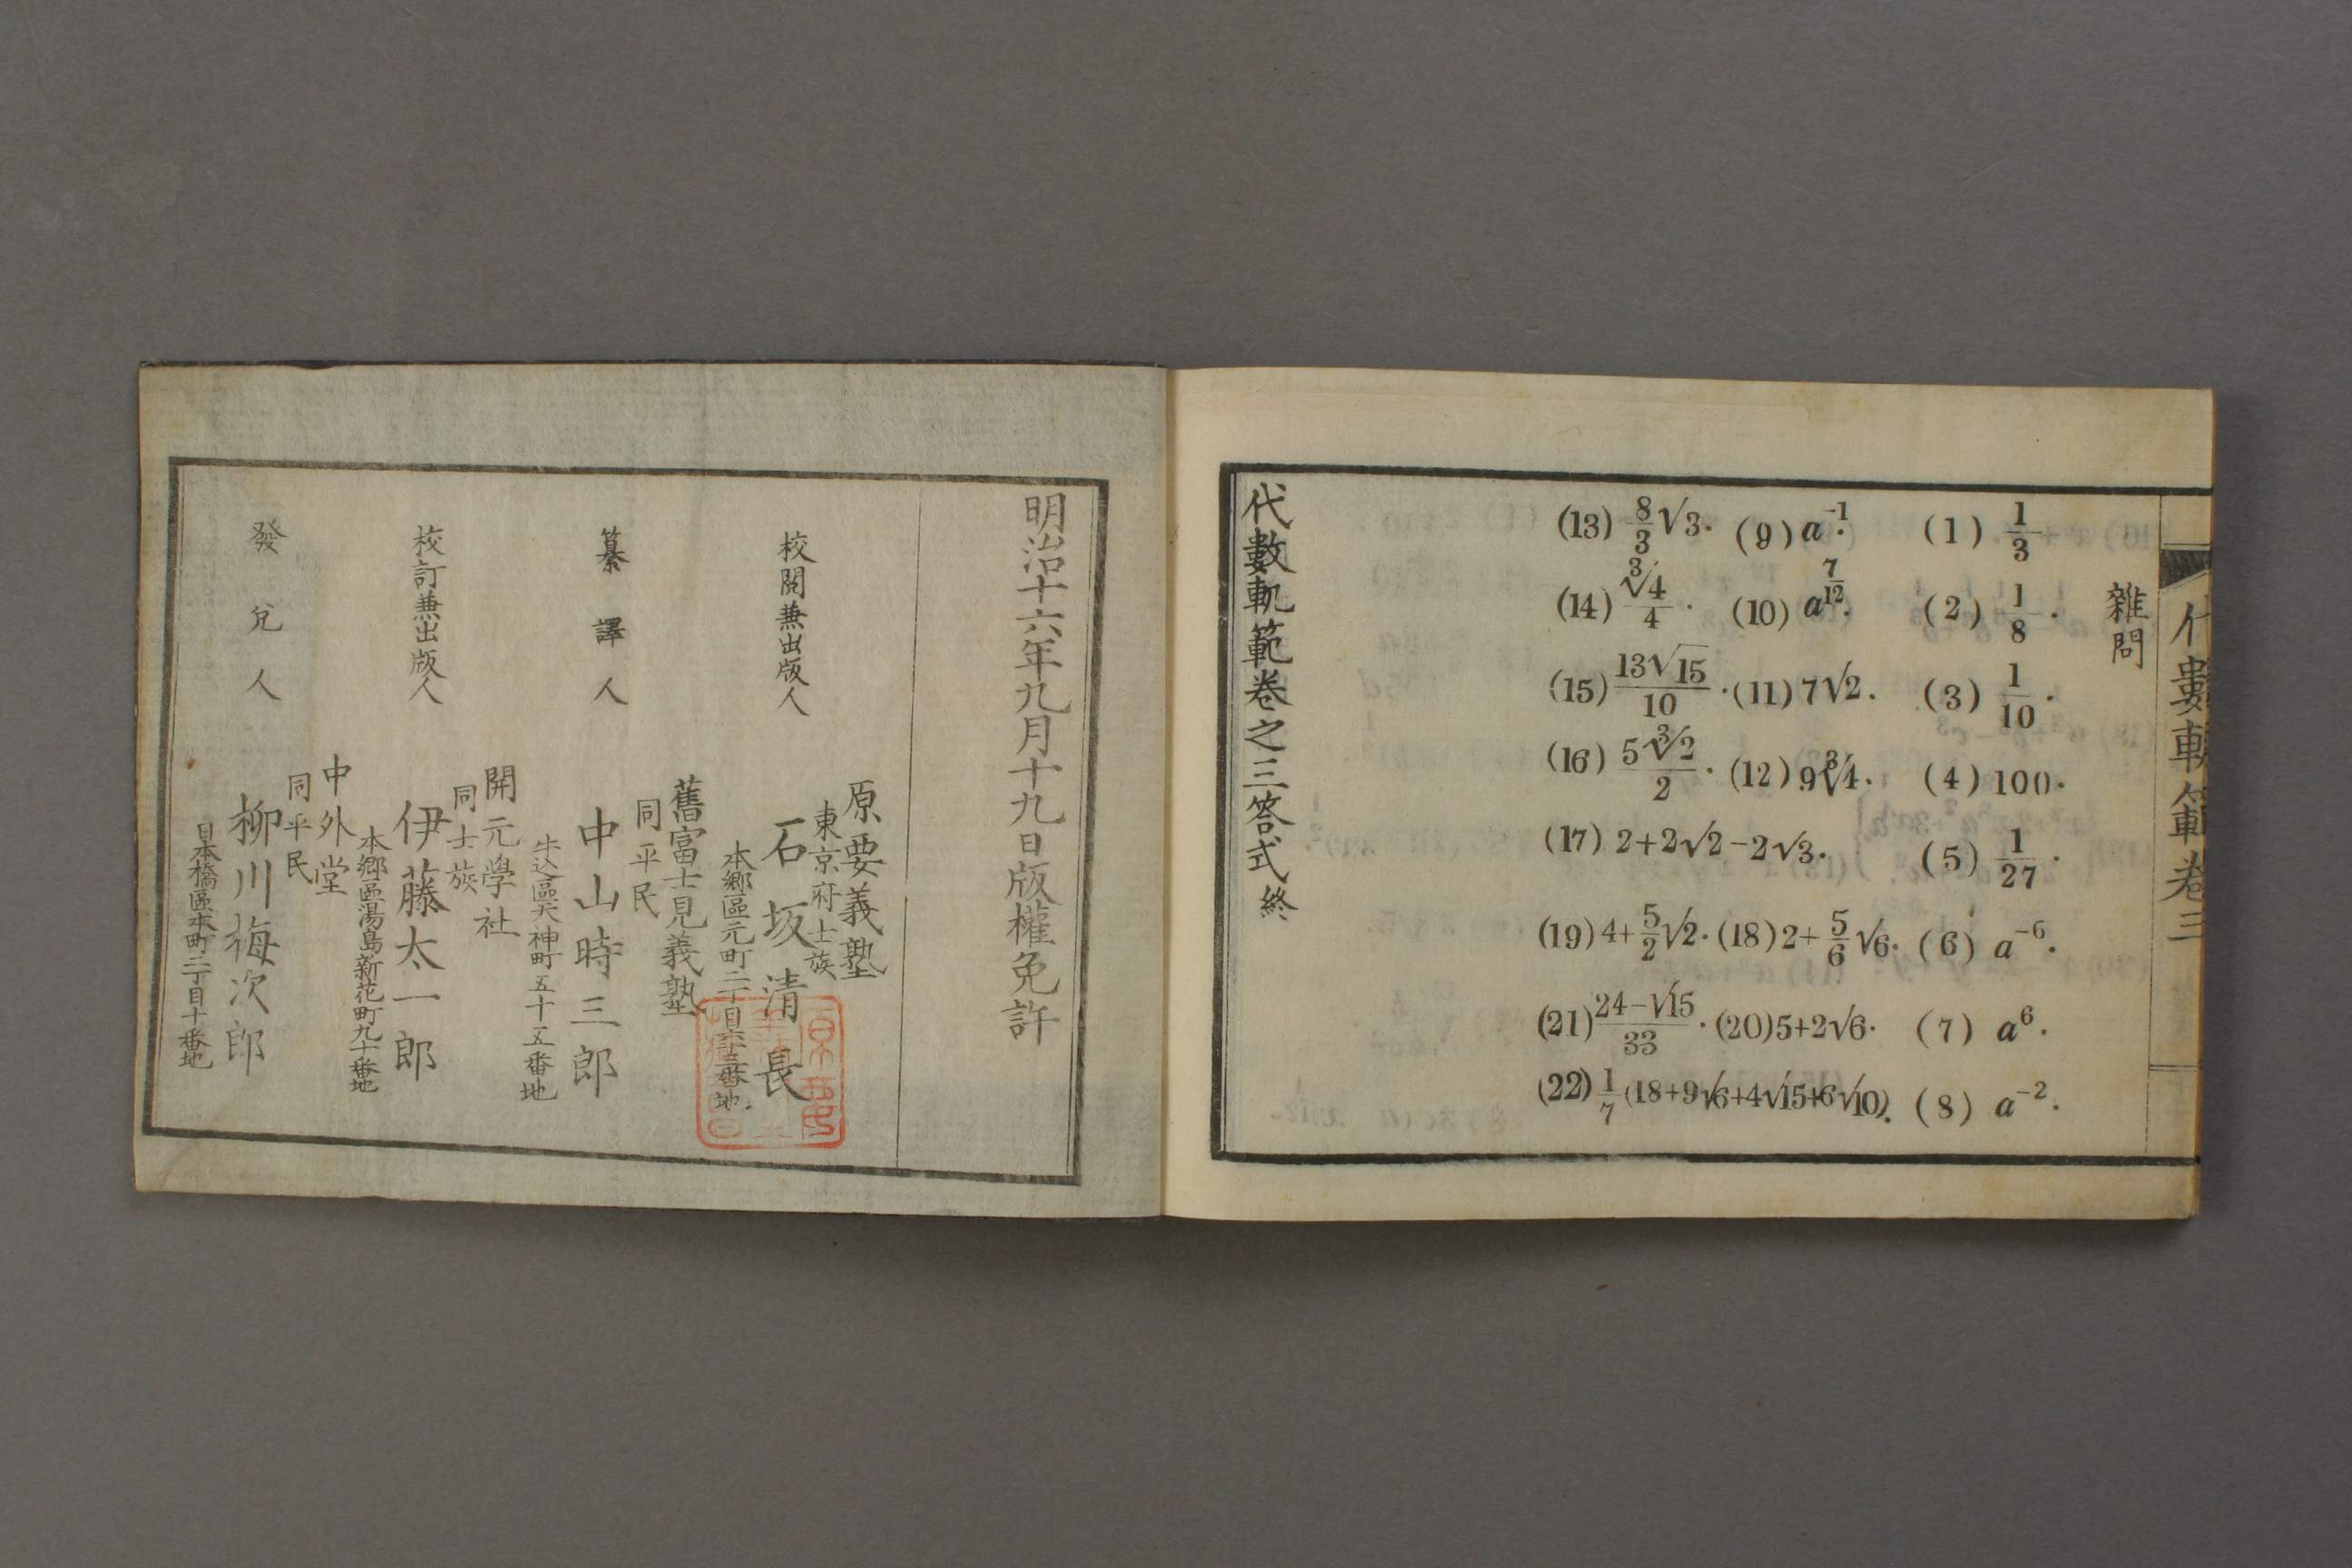 代數軌範卷三
雜問
(1) 1/3
(2) 1/8.
(3) 1/10.
(4) 100.
(5) 1/27.
(6) a⁻⁶.
(7) a⁶.
(8) a⁻².
(9) a⁻¹.
(10) a^(7/12).
(11) 7√2.
(12) 9∛4.
(13) 8/3√3.
(14) ∛4/4.
(15) 13√15/10.
(16) 5∛2/2.
(17) 2+2√2−2√3.
(18) 2+5/6√6.
(19) 4+5/2√2.
(20) 5+2√6.
(21) 24−√15/33.
(22) 1/7(18+9√6+4√15+6√10).
代數軌範卷之三答式終
明治十六年九月十九日版權免許
校閱兼出版人
原要義塾
東京府士族
石坂清長
本郷區元町二丁目六十三番地.
纂譯人
舊富士見義塾
同平民
中山時三郎
牛込區天神町五十五番地
校訂兼出版人
開元學社
同士族
伊藤太一郎
本郷區湯島新花町九十番地
發兌人
中外堂
同平民
柳川梅次郎
日本橋區本町二丁目十番地